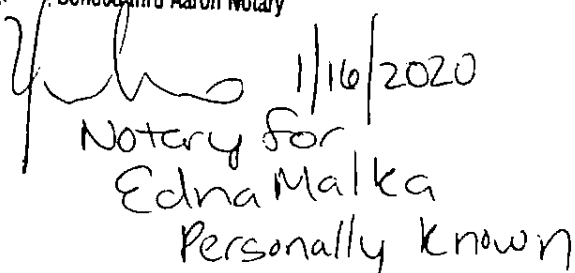 Aaron Notary
1/16/2020
Notary for
Edna Malka
Personally known